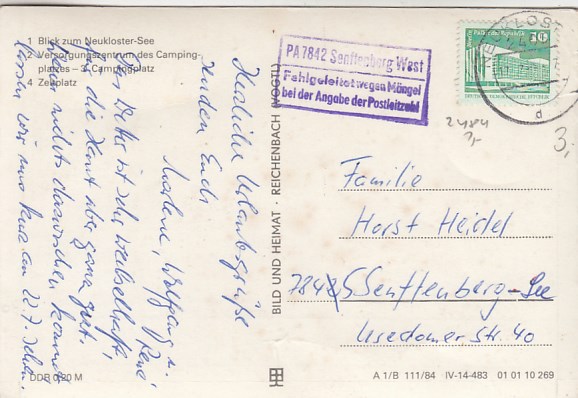 1 Blick zum Neukloster-See
2 Versorgungszentrum des Camping-
platzes – 3 Campingplatz
4 Zeltplatz
Herzliche Urlaubsgrüße
senden Euch
Marlene, Wolfgang u.
René
Das Wetter ist sehr wechselhaft,
für die Haut aber ganz gut.
nichts dazwischen kommt
lassen wir uns kurz am 22.7. sehen.
DDR 0,20 M
BILD UND HEIMAT · REICHENBACH (VOGTL)
PA 7842 Senftenberg West
Fehlgeleitet wegen Mängel
bei der Angabe der Postleitzahl
NEUKLOSTER
d
DEUTSCHE DEMOKRATISCHE REPUBLIK
3,-
Familie
Horst Heidel
7842 Senftenberg-See
Usedomer Str. 40
A 1/B 111/84 IV-14-483 01 01 10 269